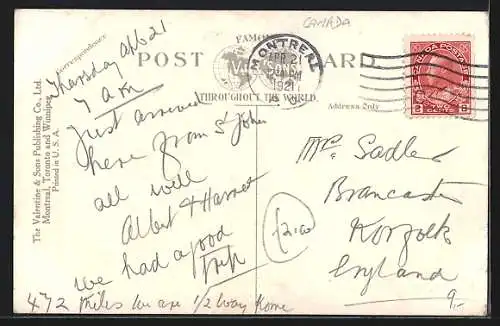 CANADA
Correspondence.
POST CARD
FAMOUS
THROUGHOUT THE WORLD.
Address Only
MONTREAL
APR 21
1921
CANADA POSTAGE
2 TWO CENTS 2
The Valentine & Sons Publishing Co., Ltd.
Montreal, Toronto and Winnipeg
Printed in U. S. A.
Thursday Apl 21
7 am
Just arrived
here from St John
all well
Albert & Harriet
we had a good
trip
472 miles We are 1/2 way home
Mrs Sadler
Brancaster
Norfolk
England
£2.00
9,-